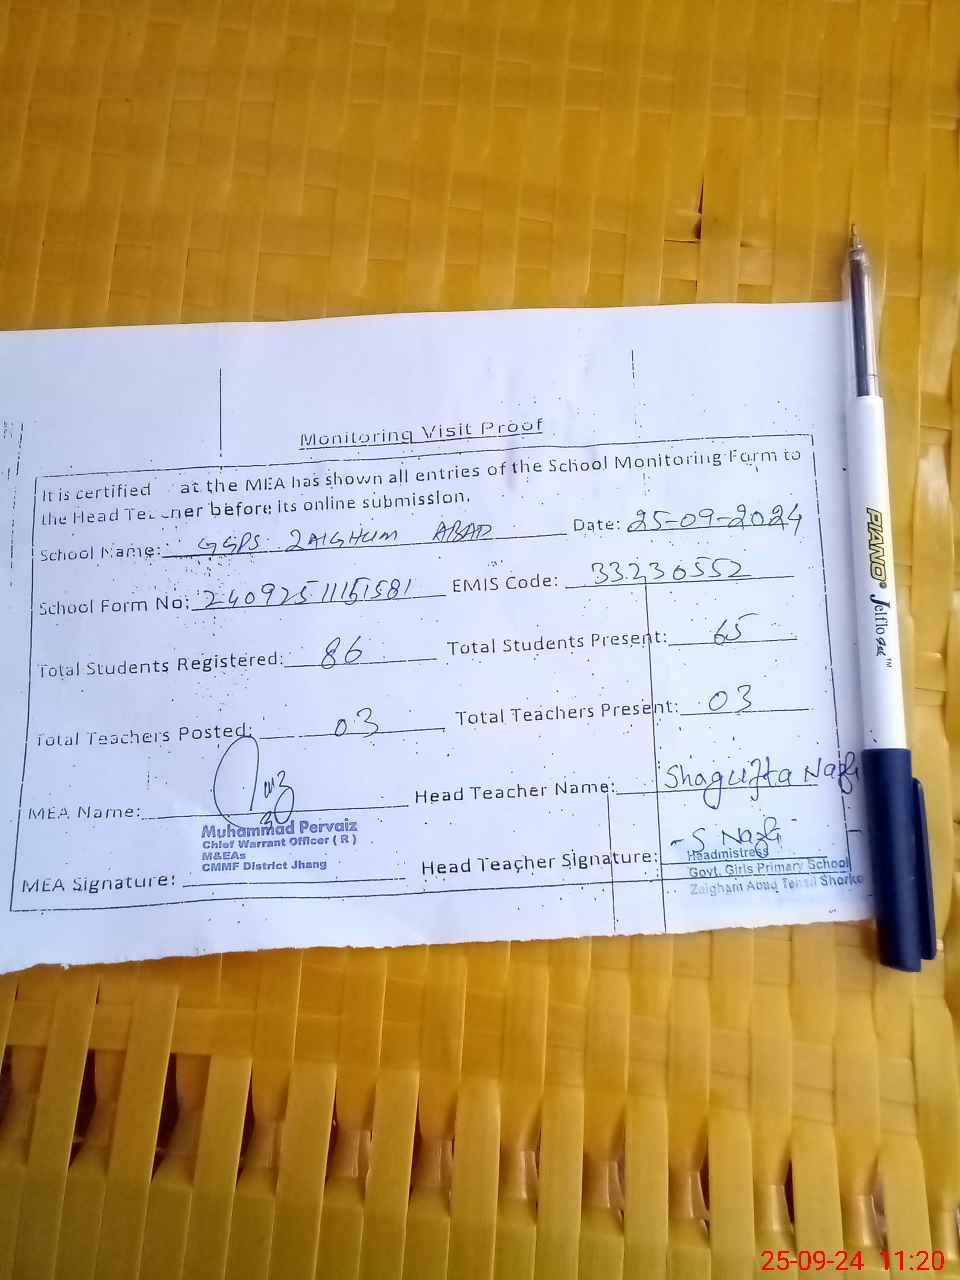 Monitoring Visit Proof
It is certified at the MEA has shown all entries of the School Monitoring Form to
the Head Teacher before its online submission.
School Name: GGPS ZAIGHUM ABAD Date: 25-09-2024
School Form No: 24092511151581 EMIS Code: 33230552
Total Students Registered: 86 Total Students Present: 65
Total Teachers Posted: 03 Total Teachers Present: 03
MEA Name: Head Teacher Name: Shagufta Nazli
Muhammad Pervaiz
Chief Warrant Officer ( R )
M&EAs
CMMF District Jhang
MEA Signature: Head Teacher Signature: S Nazli
Headmistress
Govt. Girls Primary School
Zaigham Abad Tehsil Shorko
PIANO
Jelflo gel ™
25-09-24 11:20